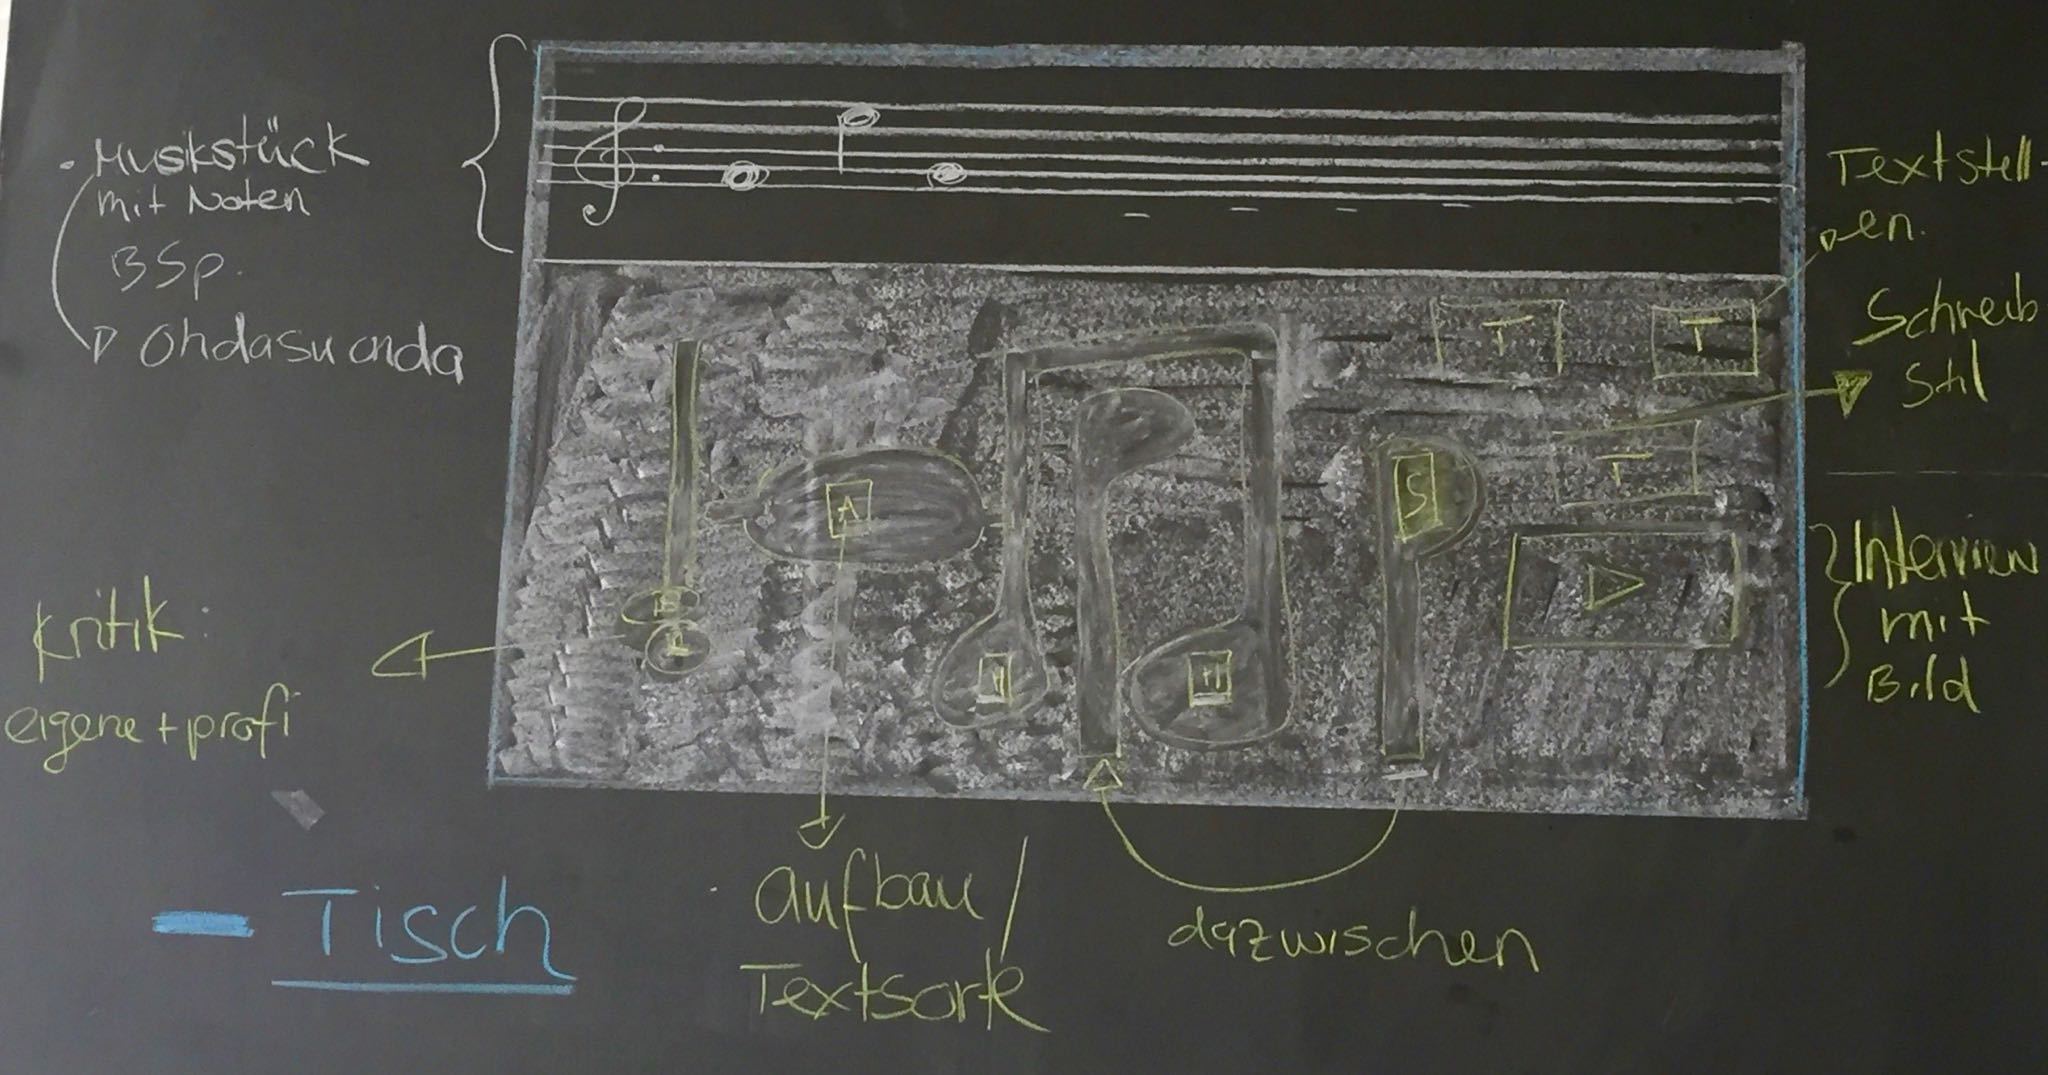 · Musikstück
mit Noten
BSp.
Ohdasuanda
Kritik:
eigene + profi
A
S
T
T
T
Textstell-
en.
Schreib
Stil
Interview
mit
Bild
aufbau/
Textsorte
dazwischen
Tisch